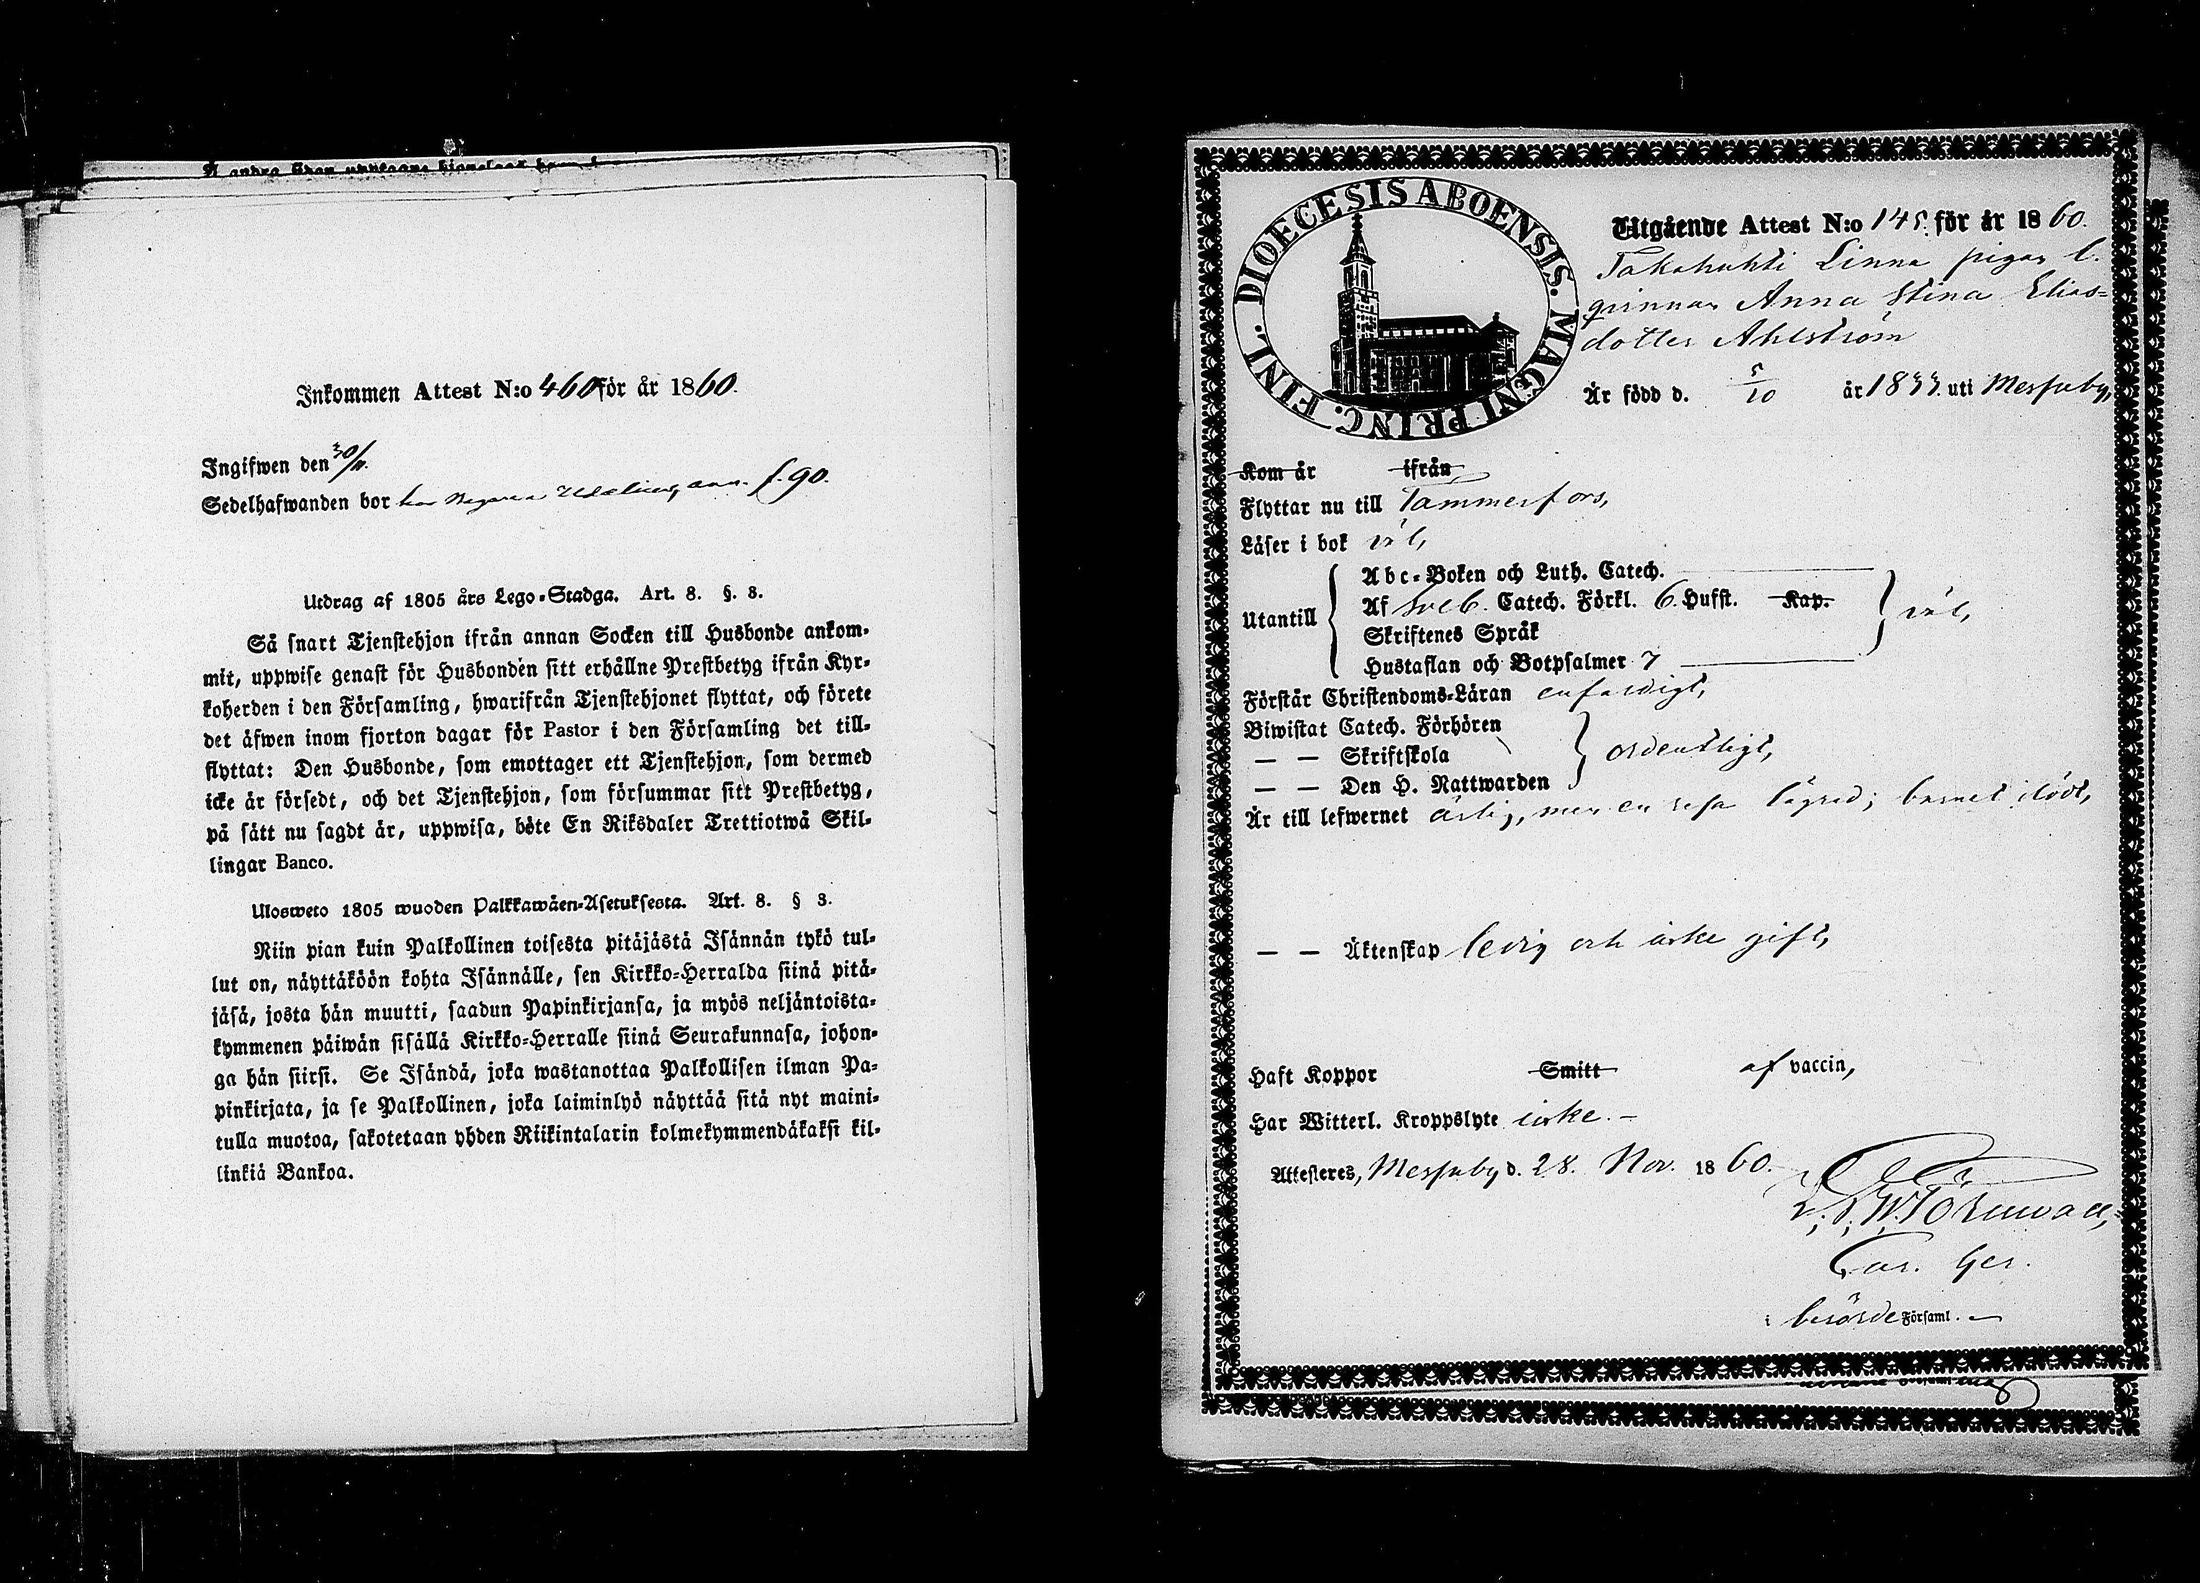 Inkommen Attest N:o 460 för år 1860.
Ingifwen den 30/11.
Sedelhafwanden bor hos f. 90.
Utdrag af 1805 års Lego-Stadga. Art. 8. §. 8.
Så snart Tjenstehjon ifrån annan Socken till Husbonde ankom-
mit, uppwise genast för Husbonden sitt erhållne Prestbetyg ifrån Kyr-
koherden i den Församling, hwarifrån Tjenstehjonet flyttat, och förete
det äfwen inom fjorton dagar för Pastor i den Församling det till-
flyttat: Den Husbonde, som emottager ett Tjenstehjon, som dermed
icke är försedt, och det Tjenstehjon, som försummar sitt Prestbetyg,
på sätt nu sagdt är, uppwisa, böte En Riksdaler Trettiotwå Skil-
lingar Banco.
Ulosweto 1805 wuoden Palkkawäen-Asetuksesta. Art. 8. § 8.
Niin pian kuin Palkollinen toisesta pitäjästä Isännän tykö tul-
lut on, näyttäköön kohta Isännälle, sen Kirkko-Herralda siinä pitä-
jäsä, josta hän muutti, saadun Papinkirjansa, ja myös neljäntoista-
kymmenen päiwän sisällä Kirkko-Herralle siinä Seurakunnasa, johon-
ga hän siirsi. Se Isändä, joka wastanottaa Palkollisen ilman Pa-
pinkirjata, ja se Palkollinen, joka laiminlyö näyttää sitä nyt maini-
tulla muotoa, sakotetaan yhden Riikintalarin kolmekymmendäkaksi kil-
linkiä Bankoa.
DIOECESIS ABOENSIS. MAGNI PRINC. FINL.
Utgående Attest N:o 145. för år 1860.
Takahuhti Linna pigan l.
qvinnan Anna Stina Elias-
dotter Ahlström
Är född d. 5/10 år 1833. uti Messuby,
Kom år ifrån
Flyttar nu till Tammerfors,
Läser i bok väl,
Utantill
Abc-Boken och Luth. Catech.
Af Sveb. Catech. Förkl. 6. Hufst. Kap.
väl,
Skriftenes Språk
Hustaflan och Botpsalmer 7
Förstår Christendoms-Läran enfaldigt,
Biwistat Catech. Förhören
— — Skriftskola
ordentligt,
— — Den H. Nattwarden
Är till lefwernet ärlig, men en resa lägrad; barnet dödt,
— — Äktenskap ledig och icke gift,
Haft Koppor Smitt af vaccin,
Har Witterl. Kroppslyte icke. —
Attesteres, Messuby d. 28. Nov. 1860.
Törnwall,
Past. Ger.
i berörde Församl. —